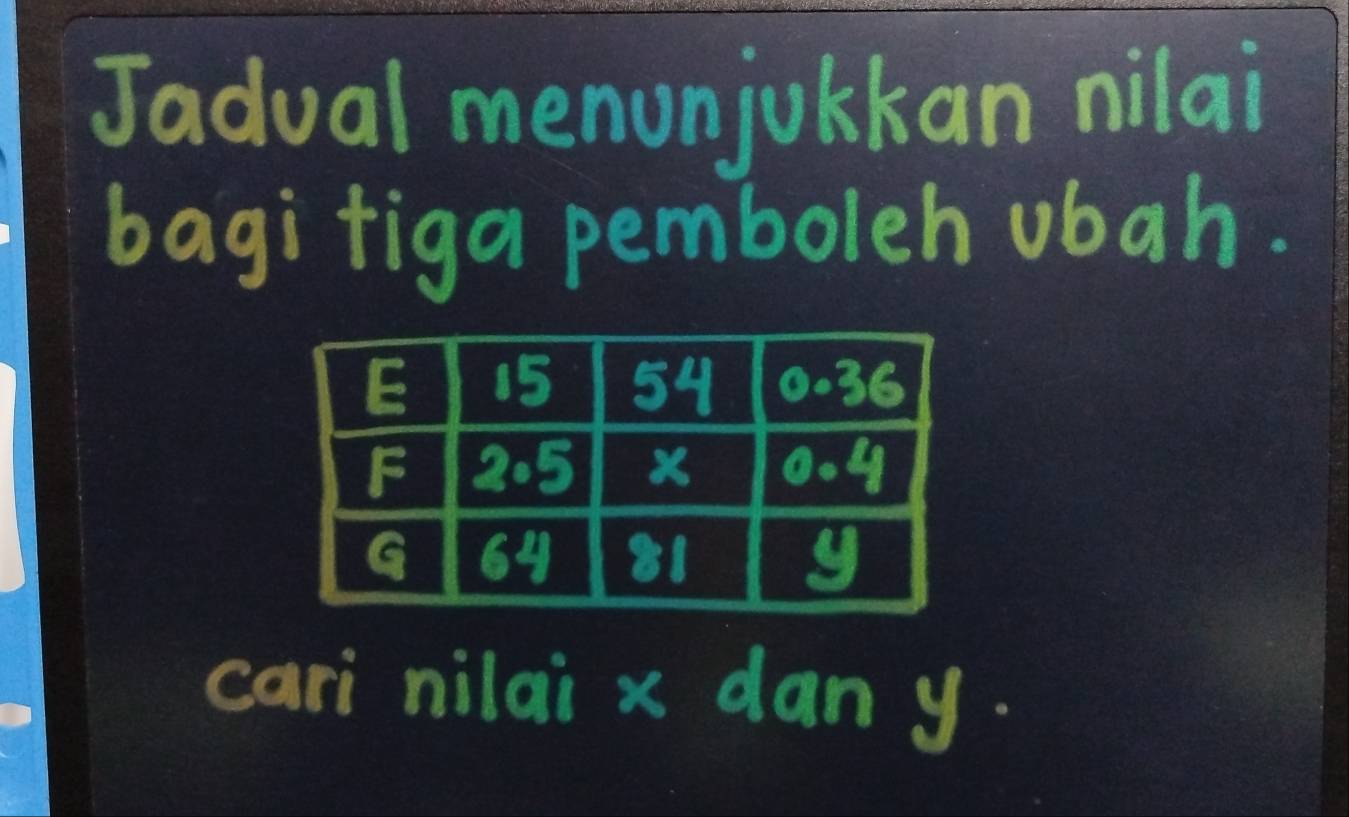 Jadual menunjukkan nilai
bagi tiga pemboleh ubah.
E 15 54 0.36
F 2.5 x 0.4
G 64 81 y
cari nilai x dan y.